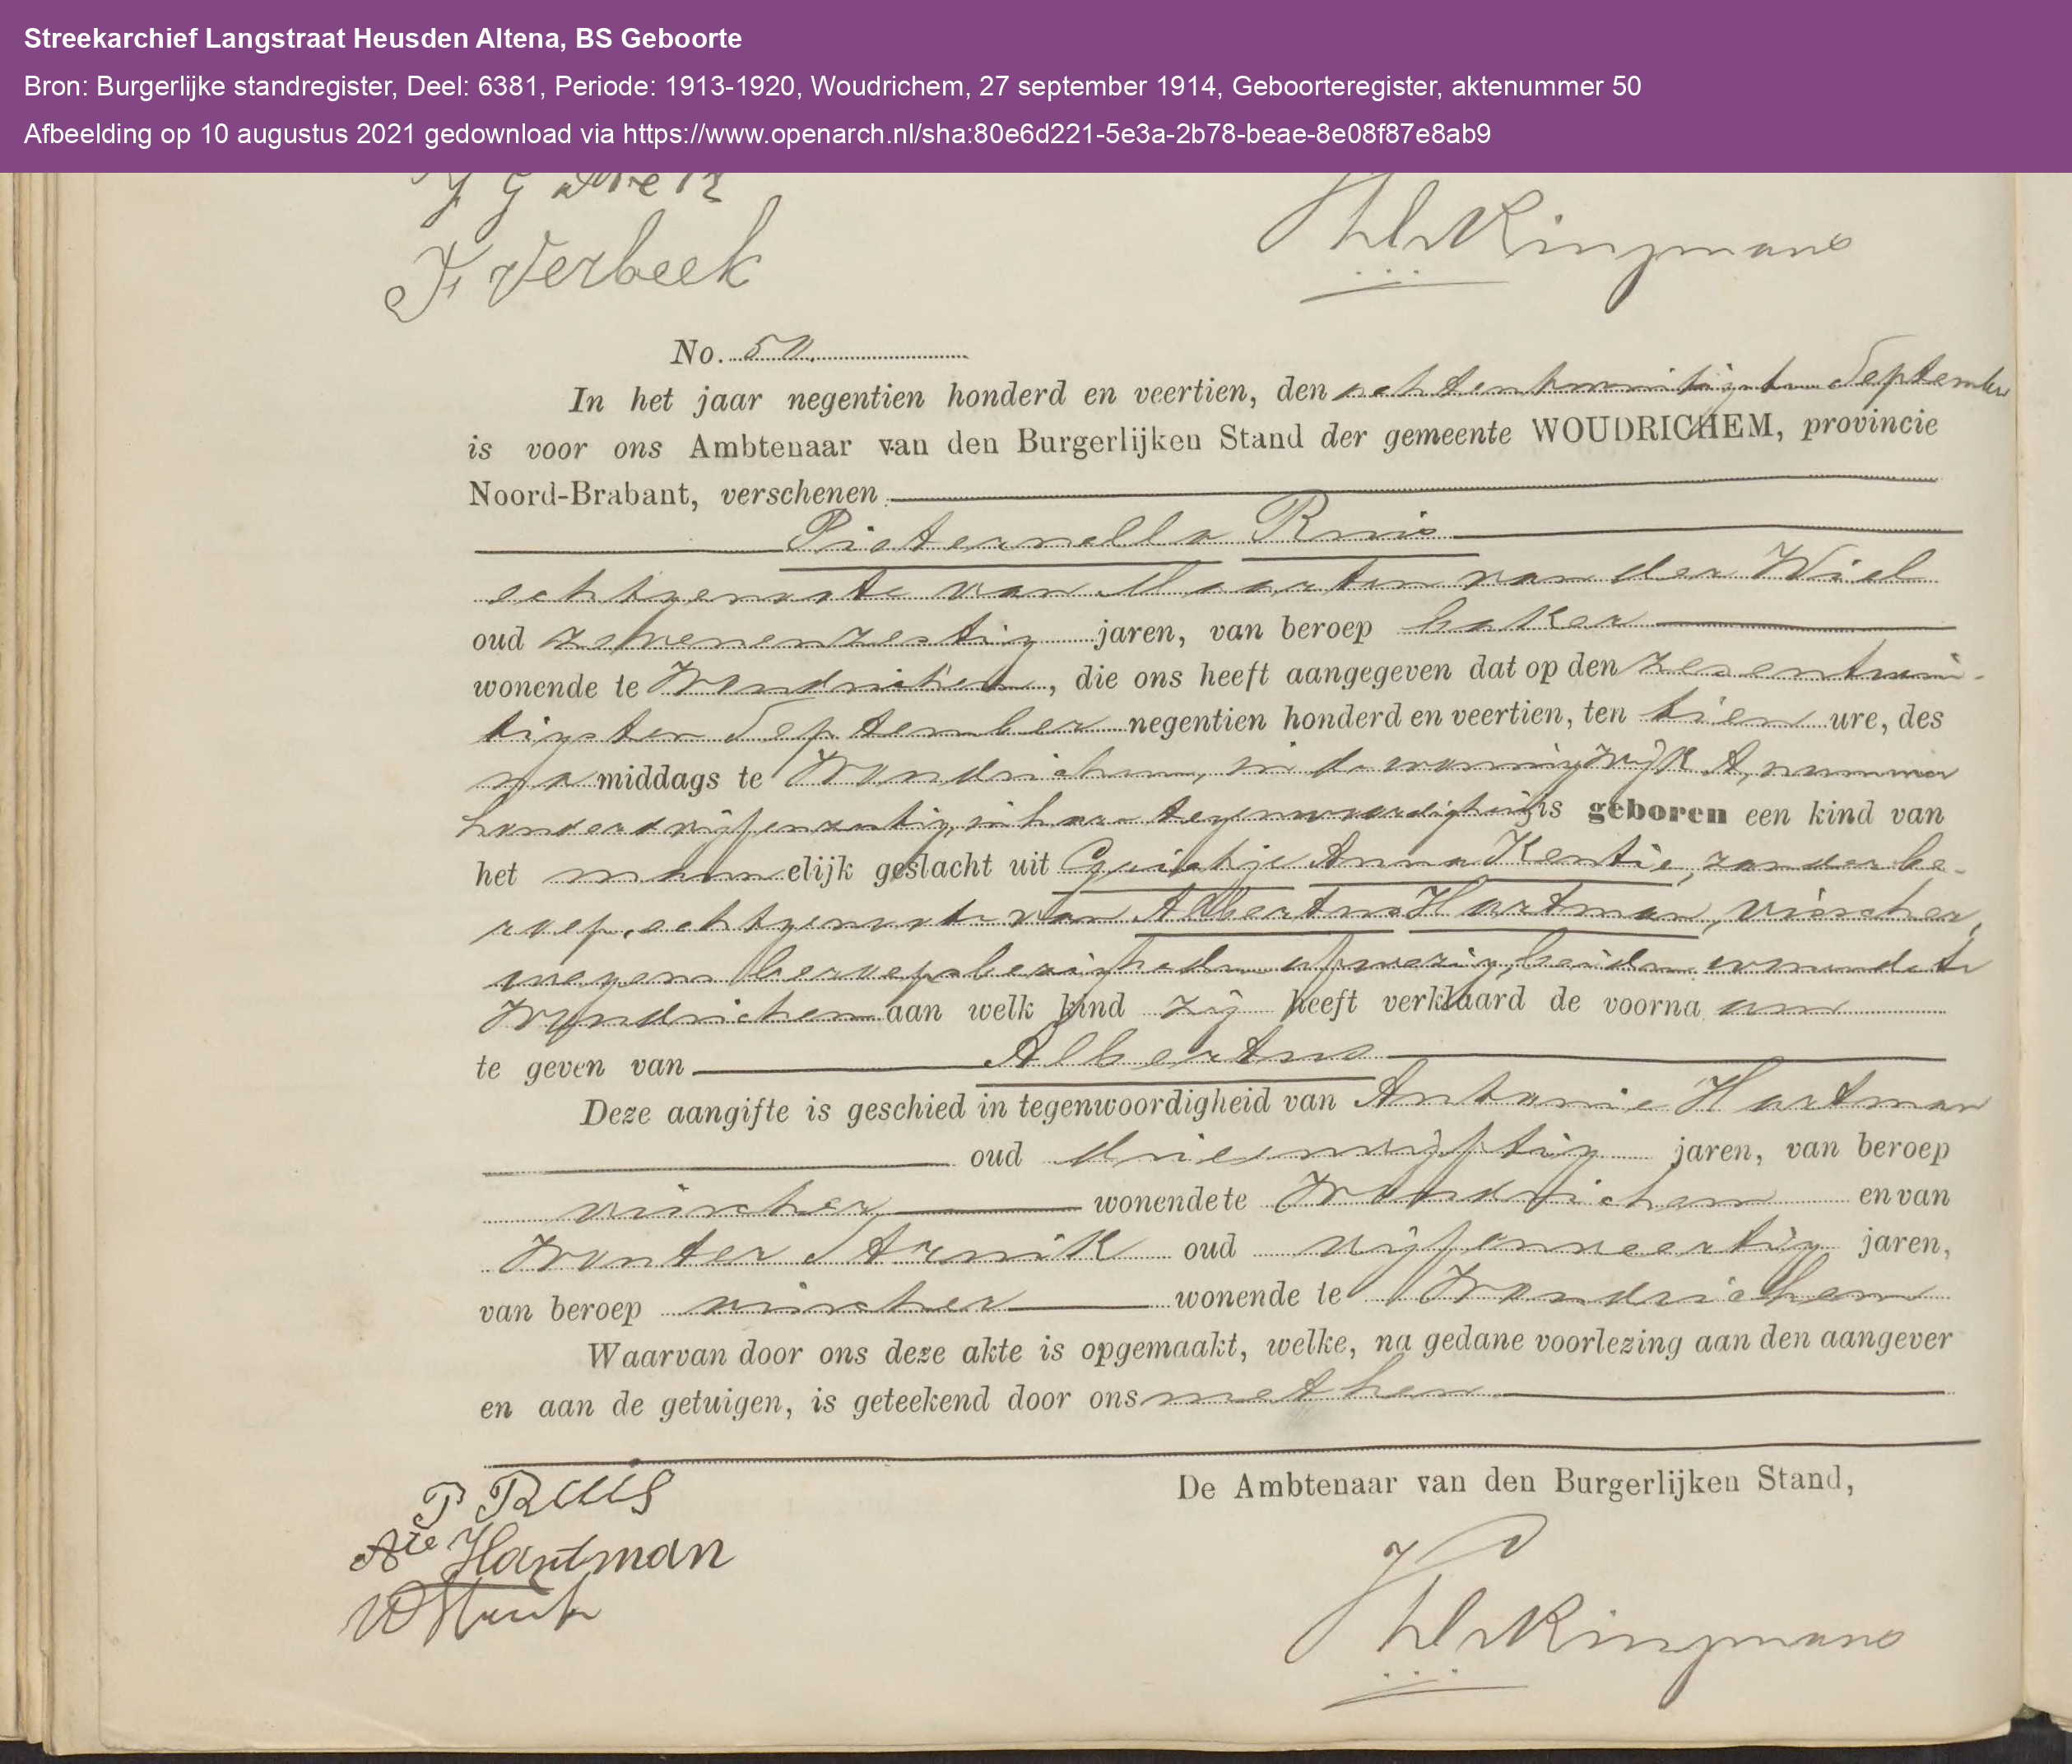 Streekarchief Langstraat Heusden Altena, BS Geboorte
Bron: Burgerlijke standregister, Deel: 6381, Periode: 1913-1920, Woudrichem, 27 september 1914, Geboorteregister, aktenummer 50
Afbeelding op 10 augustus 2021 gedownload via https://www.openarch.nl/sha:80e6d221-5e3a-2b78-beae-8e08f87e8ab9
F Verbeek
No. 50.
In het jaar negentien honderd en veertien, den achtentwintigsten September
is voor ons Ambtenaar van den Burgerlijken Stand der gemeente WOUDRICHEM, provincie
Noord-Brabant, verschenen
Pieternella Ruis
echtgenoote van Maarten van der Wiel
oud zevenenzestig jaren, van beroep baker
wonende te Woudrichem, die ons heeft aangegeven dat op den zesentwin-
tigsten September negentien honderd en veertien, ten tien ure, des
na middags te Woudrichem, in de woning wijk A, nummer
honderdvijfenzestig, in hare tegenwoordigheid is geboren een kind van
het mannelijk geslacht uit Anna Kentie, zonder be-
roep, echtgenoote van Albertus Hartman, visscher,
wegens beroepsbezigheden afwezig, beiden wonende te
Woudrichem aan welk kind zij heeft verklaard de voornaam
te geven van Albertus
Deze aangifte is geschied in tegenwoordigheid van Antonie Hartman
oud drieenvijftig jaren, van beroep
visscher wonende te Woudrichem en van
Wouter oud vijfenveertig jaren,
van beroep visscher wonende te Woudrichem
Waarvan door ons deze akte is opgemaakt, welke, na gedane voorlezing aan den aangever
en aan de getuigen, is geteekend door ons met hen
De Ambtenaar van den Burgerlijken Stand,
P Ruis
Ate Hartman